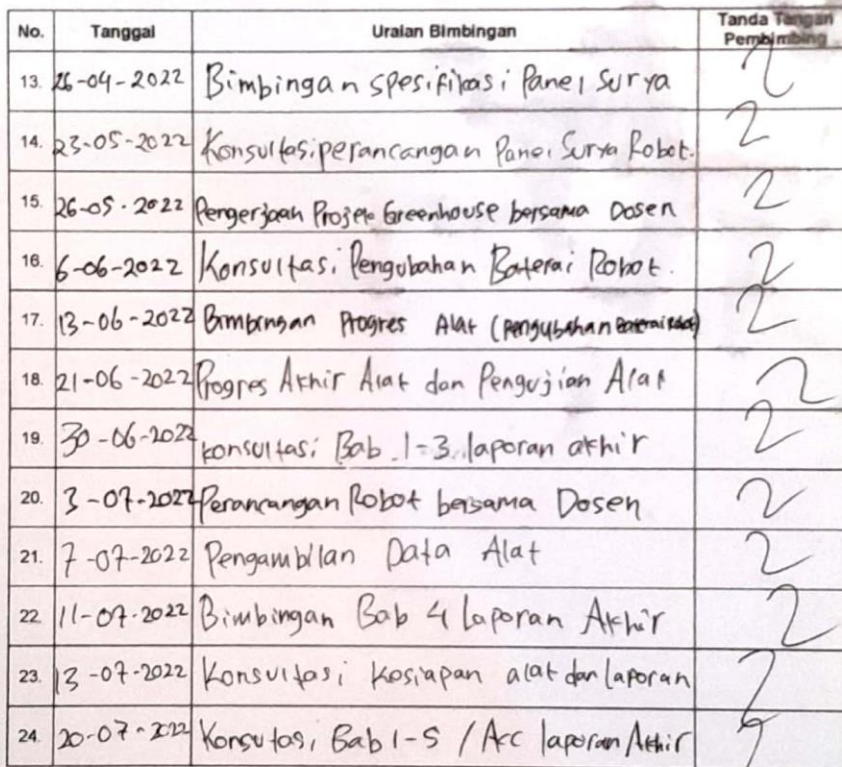 No. Tanggal Uraian Bimbingan Tanda Tangan Pembimbing
13. 26-04-2022 Bimbingan spesifikasi Panel Surya
14. 23-05-2022 Konsultasi perancangan Panel Surya Robot.
15. 26-05-2022 Pengerjaan Projek Greenhouse bersama Dosen
16. 6-06-2022 Konsultasi Pengubahan Baterai Robot.
17. 13-06-2022 Bimbingan Progres Alat (Pengubahan Baterai Robot)
18. 21-06-2022 Progres Akhir Alat dan Pengujian Alat
19. 30-06-2022 konsultasi Bab 1-3 laporan akhir
20. 3-07-2022 Perancangan Robot bersama Dosen
21. 7-07-2022 Pengambilan Data Alat
22 11-07-2022 Bimbingan Bab 4 Laporan Akhir
23. 13-07-2022 Konsultasi kesiapan alat dan laporan
24. 20-07-2022 Konsutasi Bab 1-5 / Acc laporan Akhir